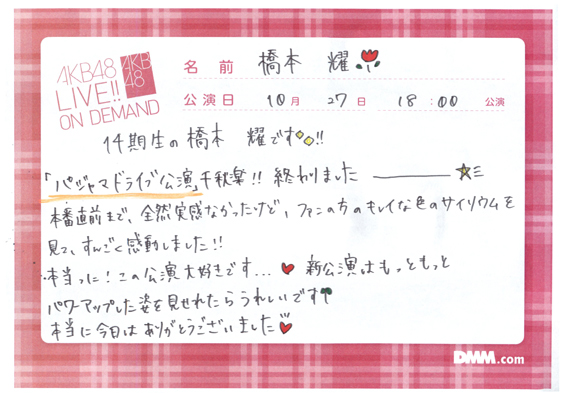 AKB48
LIVE!!
ON DEMAND
AKB
48
名前 橋本 耀
公演日 10月 27日 18:00 公演
14期生の橋本 耀です!!
「パジャマドライブ公演」千秋楽!! 終わりました
本番直前まで、全然実感なかったけど、ファンの方のキレイな色のサイリウムを
見て、すんごく感動しました!!
本当っに!この公演大好きです... 新公演はもっともっと
パワーアップした姿を見せれたらうれしいです
本当に今日はありがとうございました
DMM.com